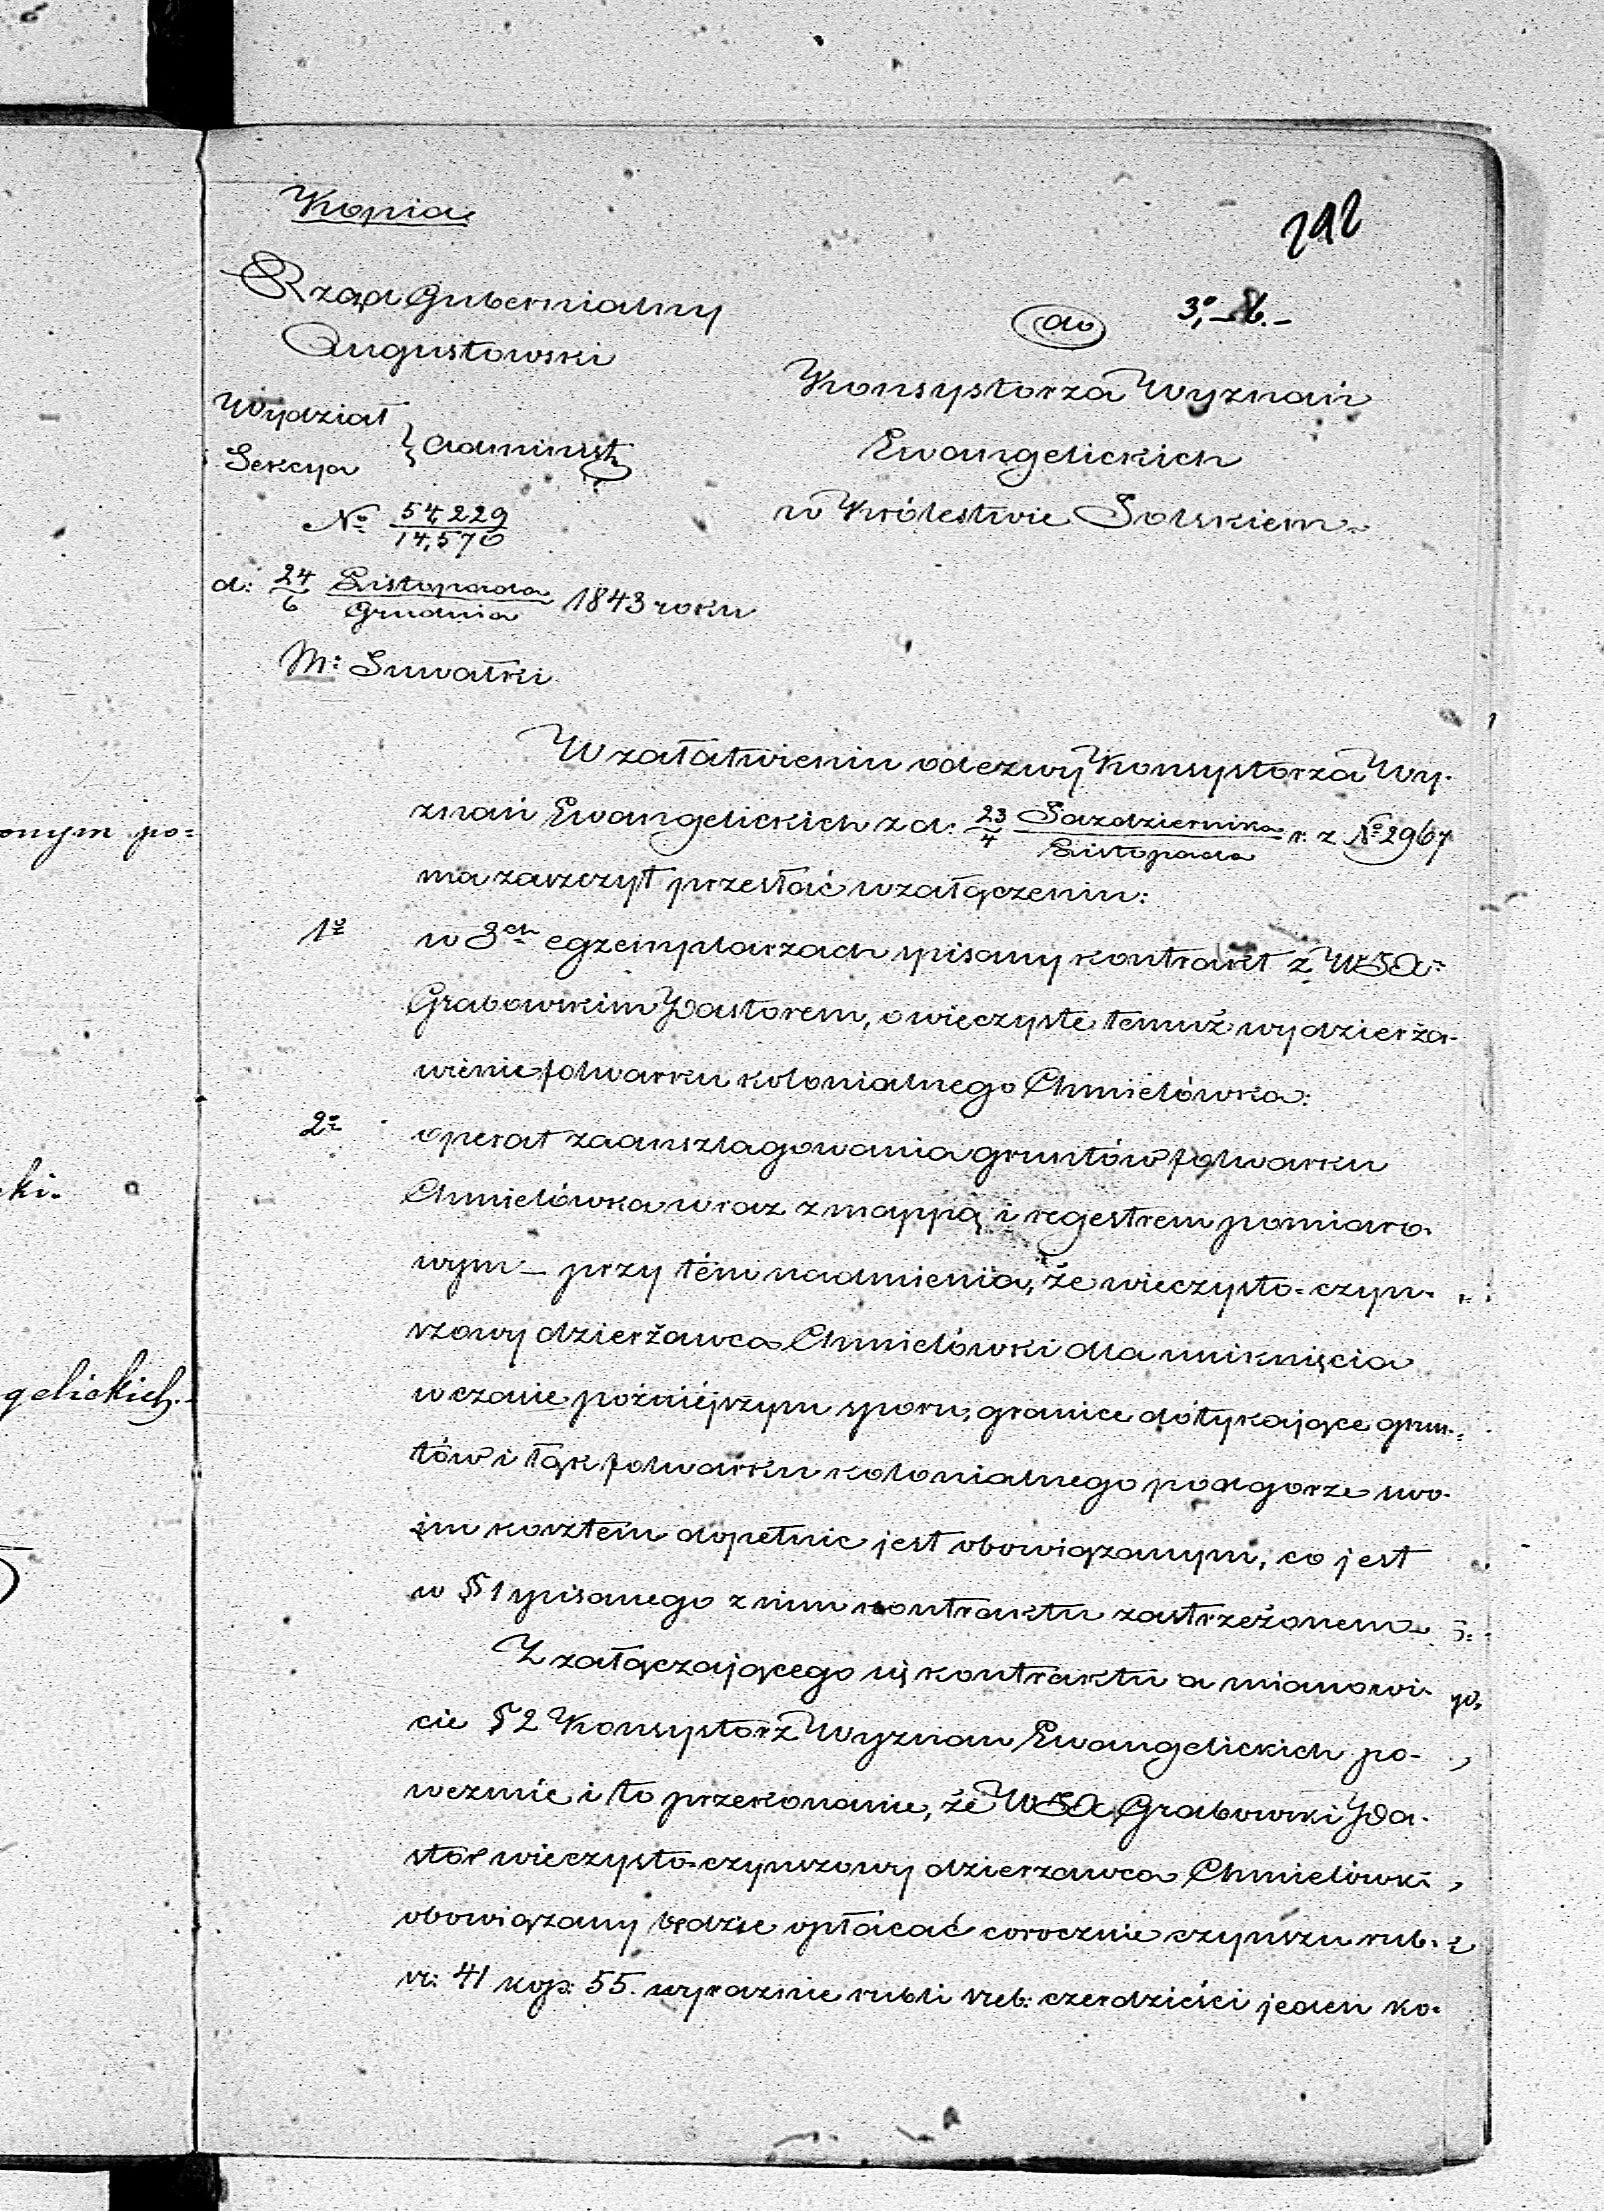 Kopia
292
Rząd Gubernialny
Augustowski
Wydział
Sekcya
Administr.
№ 54,229
14,570
d: 24/6 Listopada/Grudnia 1843 roku
M: Suwałki
do
Konsystorza Wyznań
Ewangelickich
w Królestwie Polskiem
W załatwieniu odezwy Konsystorza Wy-
znań Ewangelickich z d: 23/4 Października/Listopada r. z № 2967
ma zaszczyt przesłać w załączeniu:
1º w 3ch egzemplarzach spisany kontrakt z
Grabowskim Pastorem, o wieczyste temuż wydzierża-
wienie folwarku kolonialnego Chmielówka:
2º operat zaanszlagowania gruntów folwarku
Chmielówka wraz z mappą i regestrem pomiaro-
wym – przy tém nadmienia, że wieczysto-czyn-
szowy dzierżawca Chmielówki dla uniknięcia
w czasie późniéjszym sporu, granice dotykające grun-
tów i łąk folwarku kolonialnego podgorze swo-
im kosztem dopełnic jest obowiązanym, co jest
w § 1 spisanego z nim kontraktu zastrzeżonem
Z załączającego się kontraktu a mianowi-
cie § 2 Konsystorz Wyznan Ewangelickich po-
wezmie i to przekonanie, że Grabowski Pa-
stor wieczysto-czynszowy dzierzawca Chmielówki,
obowiązany będzie opłacać corocznie czynszu rub.
sr: 41 kop: 55. wyraznie rubli sreb: czerdzieści jeden ko-
onym po-
ki.
gelickich.